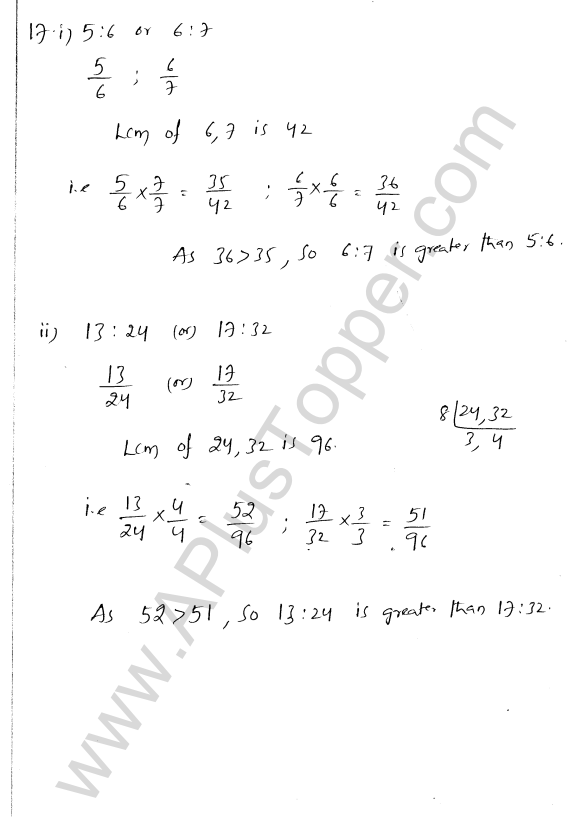 17. i) 5:6 or 6:7
5/6 ; 6/7
Lcm of 6,7 is 42
i.e 5/6 × 7/7 = 35/42 ; 6/7 × 6/6 = 36/42
As 36>35, So 6:7 is greater than 5:6.
ii) 13:24 (or) 17:32
13/24 (or) 17/32
8 | 24, 32
3, 4
Lcm of 24, 32 is 96.
i.e 13/24 × 4/4 = 52/96 ; 17/32 × 3/3 = 51/96
As 52>51, So 13:24 is greater than 17:32.
www.APlusTopper.com